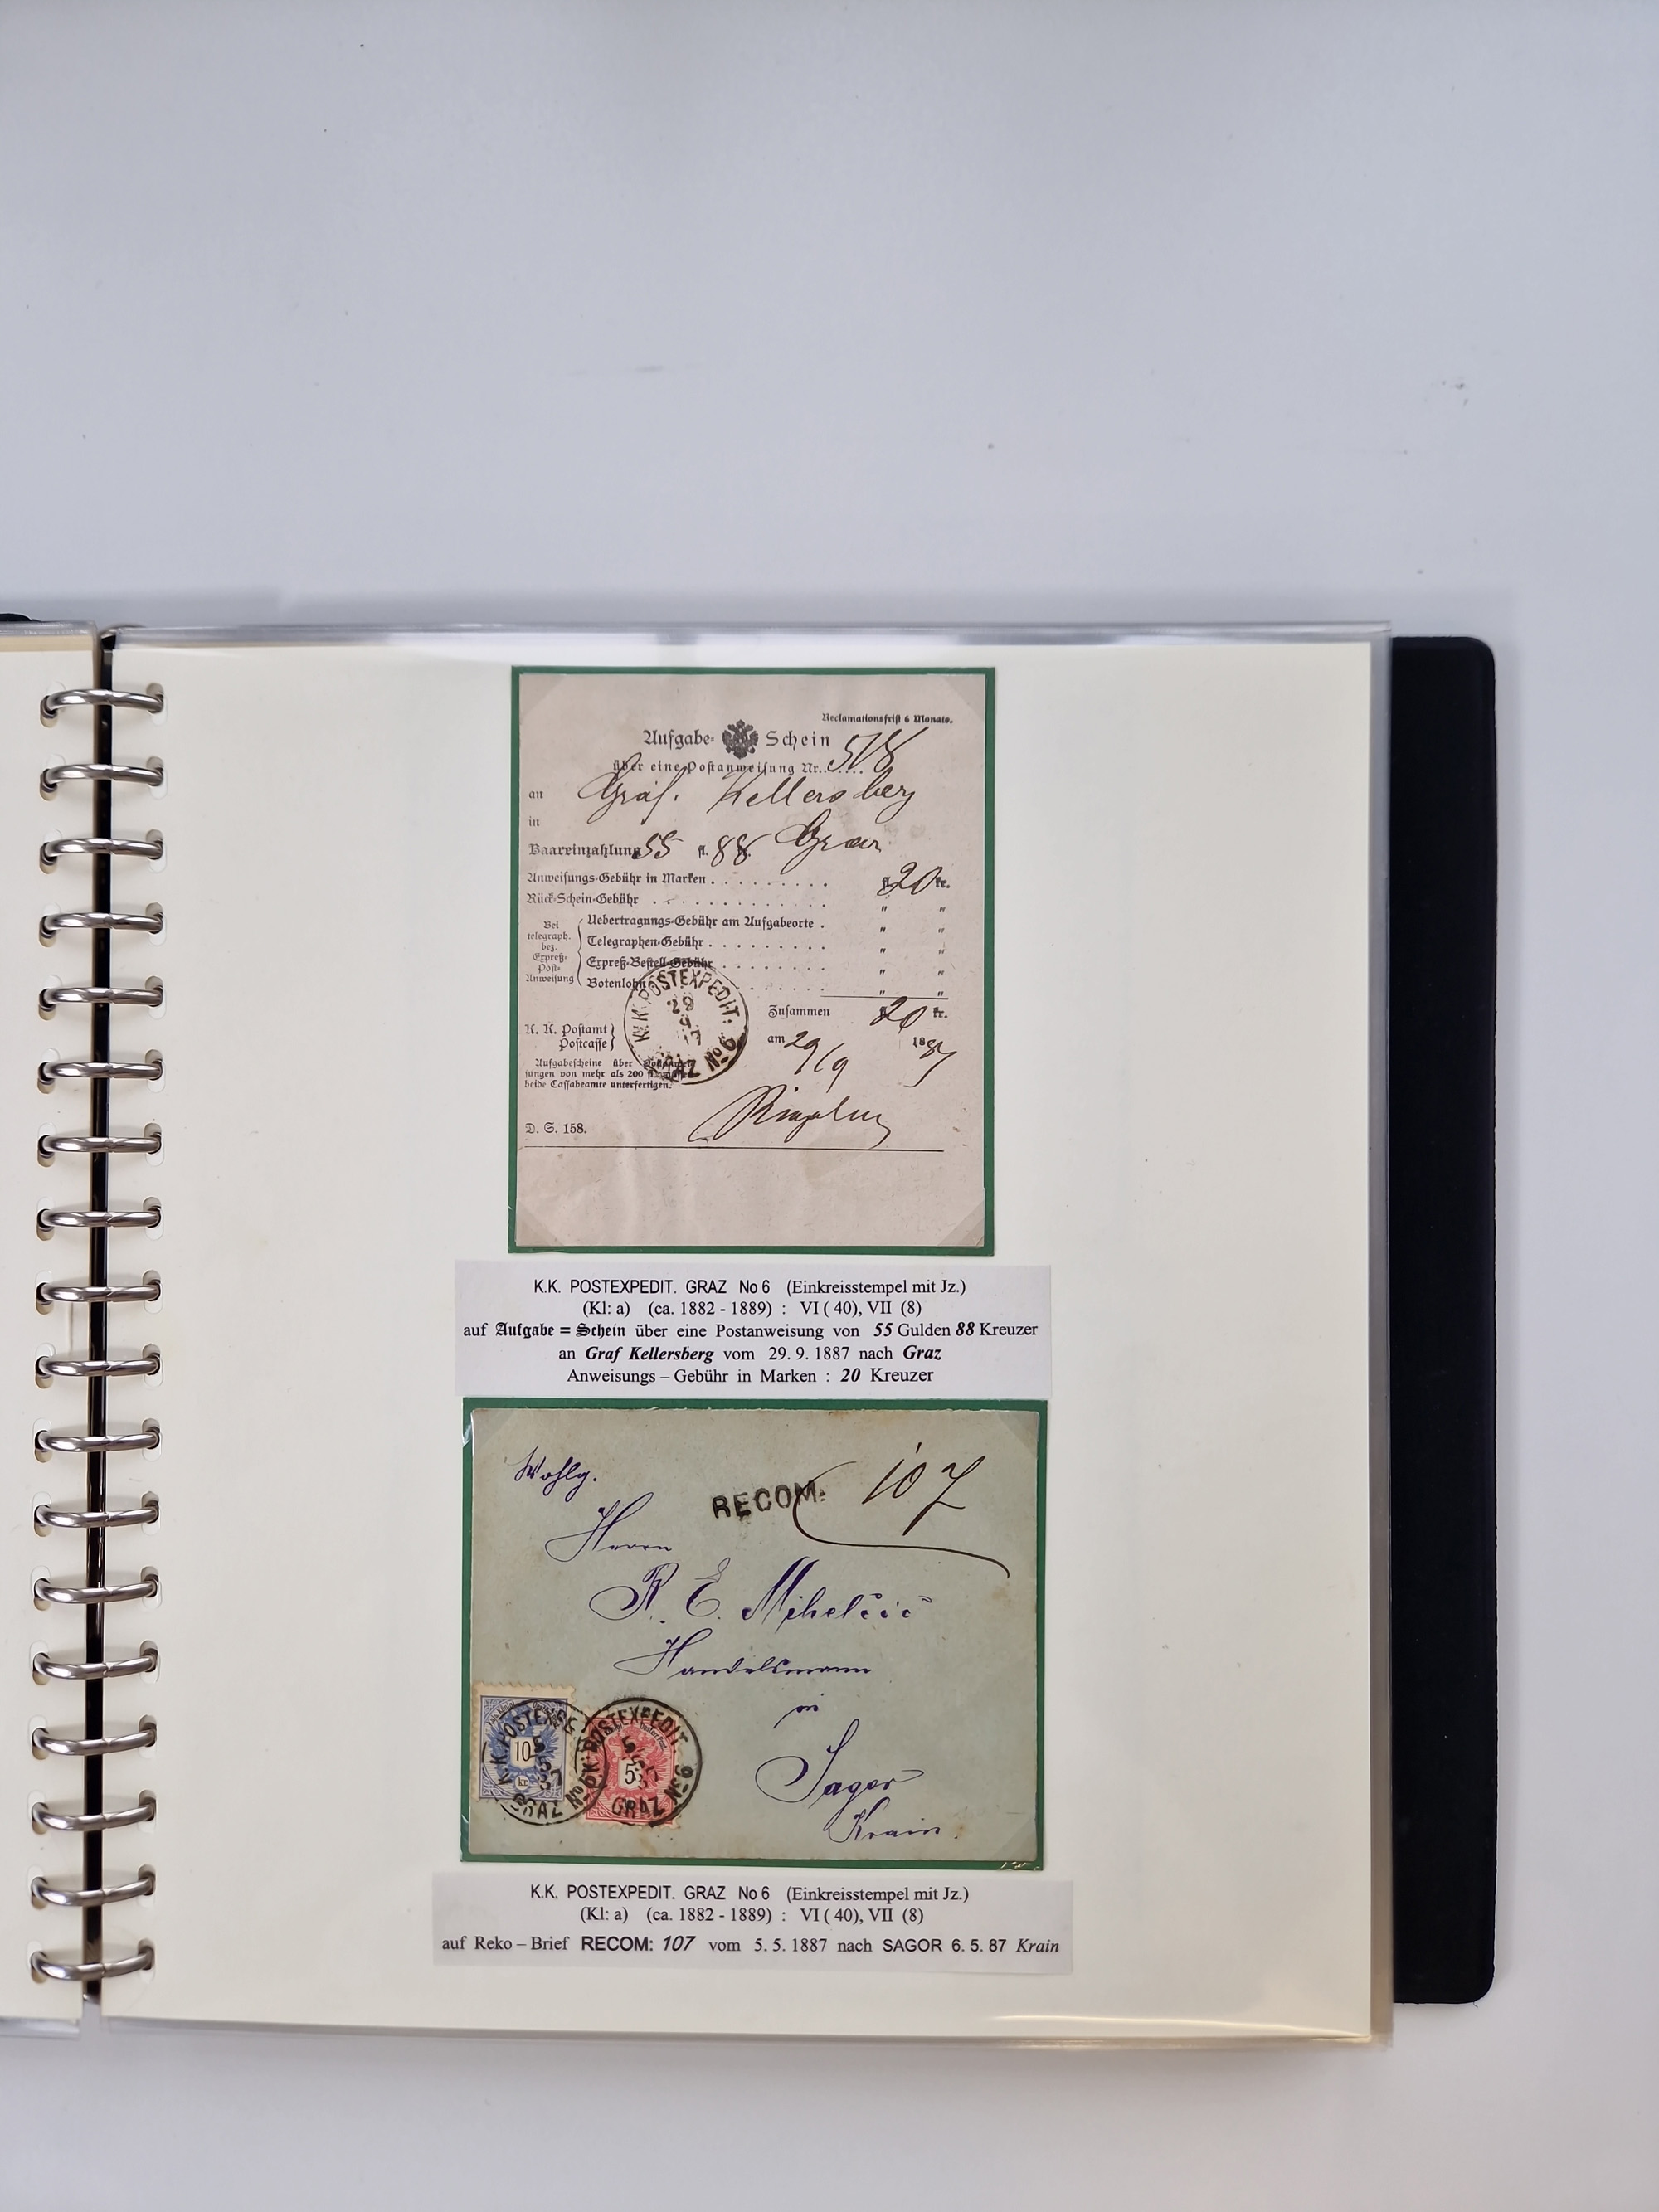 Reclamationsfrist 6 Monate.
Aufgabe- Schein
über eine Postanweisung Nr. 518
an Graf. Kellersberg
in
Baareinzahlung 55 fl. 88 Graz
Anweisungs-Gebühr in Marken . . . . . . . . . 20 kr.
Rück-Schein-Gebühr . . . . . . . . . . . . . " "
Bei telegraph. bez. Expreß-Post-Anweisung
Uebertragungs-Gebühr am Aufgabeorte . " "
Telegraphen-Gebühr . . . . . . . . . " "
Expreß-Bestell-Gebühr . . . . . . . . " "
Botenlohn . . . . . . . . " "
Zusammen 20 kr.
K. K. Postamt
Postcasse
am 29/9 1887
K.K. POSTEXPEDIT.
29
GRAZ No 6
Aufgabescheine über Postanwei-
sungen von mehr als 200 fl. müssen
beide Cassabeamte unterfertigen.
D. S. 158.
K.K. POSTEXPEDIT. GRAZ No 6 (Einkreisstempel mit Jz.)
(Kl: a) (ca. 1882 - 1889) : VI ( 40), VII (8)
auf Aufgabe = Schein über eine Postanweisung von 55 Gulden 88 Kreuzer
an Graf Kellersberg vom 29. 9. 1887 nach Graz
Anweisungs – Gebühr in Marken : 20 Kreuzer
Wohlg.
RECOM: 107
Herrn
R. E. Mihelčič
Handelsmann
in
Sagor
Krain.
10
kr.
K.K. POSTEXPE
5
5
87
GRAZ No 6
5
K.K. POSTEXPEDIT.
5
5
87
GRAZ No 6
K.K. POSTEXPEDIT. GRAZ No 6 (Einkreisstempel mit Jz.)
(Kl: a) (ca. 1882 - 1889) : VI ( 40), VII (8)
auf Reko – Brief RECOM: 107 vom 5. 5. 1887 nach SAGOR 6. 5. 87 Krain